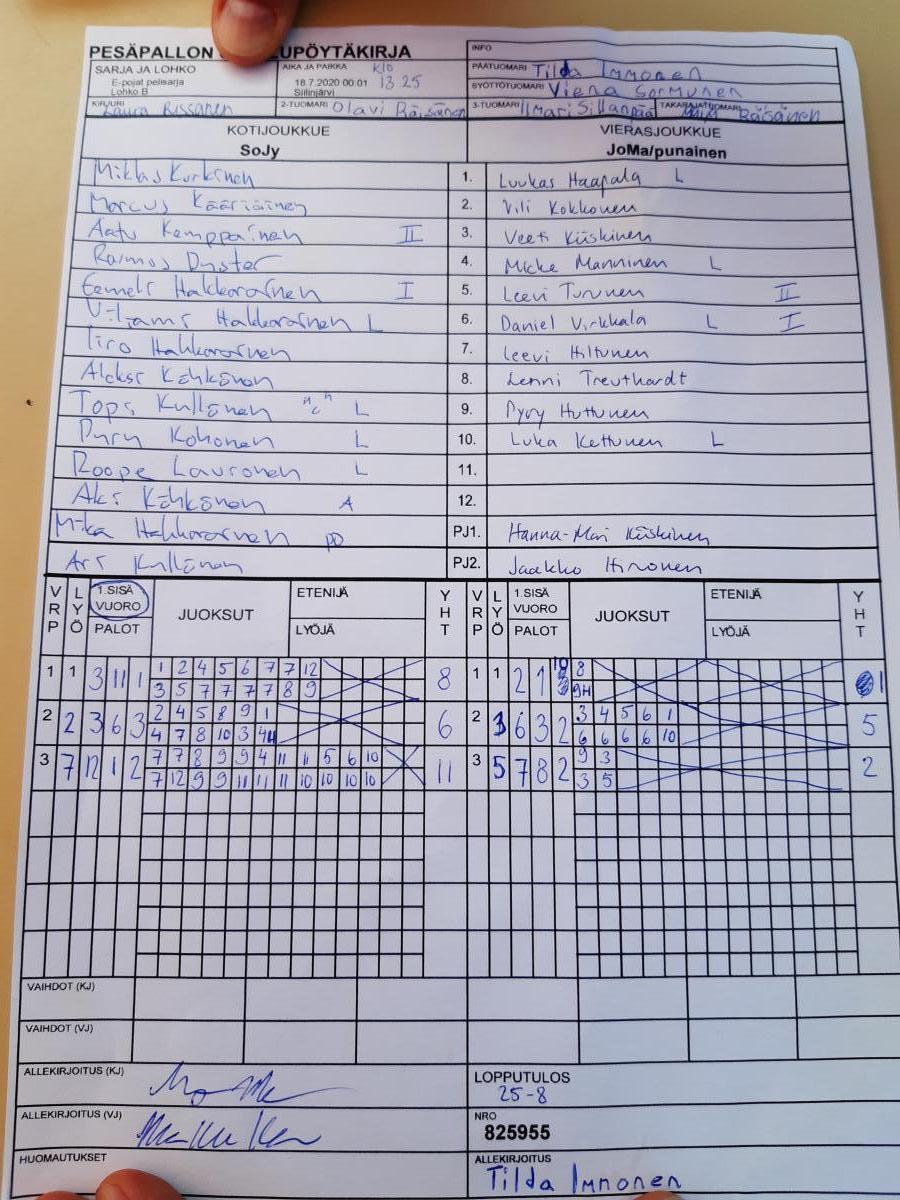 PESÄPALLON UPÖYTÄKIRJA
INFO
SARJA JA LOHKO
E-pojat pelisarja
Lohko B
AIKA JA PAIKKA klo
18.7.2020 00.01 13.25
Siilinjärvi
PÄÄTUOMARI Tilda Immonen
SYÖTTÖTUOMARI Viena Sormunen
KIRJURI Laura Rissanen
2-TUOMARI Olavi Räisänen
3-TUOMARI Ilmari Sillanpää
TAKARAJATUOMARI Räisänen
KOTIJOUKKUE
SoJy
VIERASJOUKKUE
JoMa/punainen
Miklas Korkinen 1. Luukas Haapala L
Marcus Kääriäinen 2. Vili Kokkonen
Aatu Kemppainen II 3. Veeti Kiiskinen
Rasmus Dyster 4. Micke Manninen L
Eemeli Hakkarainen I 5. Leevi Turunen II
Viljami Hakkarainen L 6. Daniel Virkkala L I
Iiro Hakkarainen 7. Leevi Hiltunen
Aleksi Kähkönen 8. Lenni Treuthardt
Topi Kullönen "C" L 9. Pyry Huttunen
Pyry Kohonen L 10. Luka Kettunen L
Roope Lauronen L 11.
Aki Kähkönen A 12.
Mika Hakkarainen PD PJ1. Hanna-Mari Kiiskinen
Ari Kullönen PJ2. Jaakko Hironen
VRP LYÖ 1.SISÄ VUORO PALOT JUOKSUT ETENIJÄ LYÖJÄ YHT VRP LYÖ 1.SISÄ VUORO PALOT JUOKSUT ETENIJÄ LYÖJÄ YHT
1 1 3 11 1 1 2 4 5 6 7 7 12 8 1 1 2 1 10 8 1
3 5 7 7 7 7 8 9 9H
2 2 3 6 3 2 4 5 8 9 1 6 2 3 6 3 2 3 4 5 6 1 5
4 7 8 10 3 4H 6 6 6 6 10
3 7 12 1 2 7 7 8 9 9 4 11 11 5 6 10 11 3 5 7 8 2 9 3 2
7 12 9 9 11 11 11 10 10 10 10 3 5
VAIHDOT (KJ)
VAIHDOT (VJ)
ALLEKIRJOITUS (KJ)
LOPPUTULOS
25-8
ALLEKIRJOITUS (VJ)
NRO
825955
HUOMAUTUKSET
ALLEKIRJOITUS
Tilda Immonen